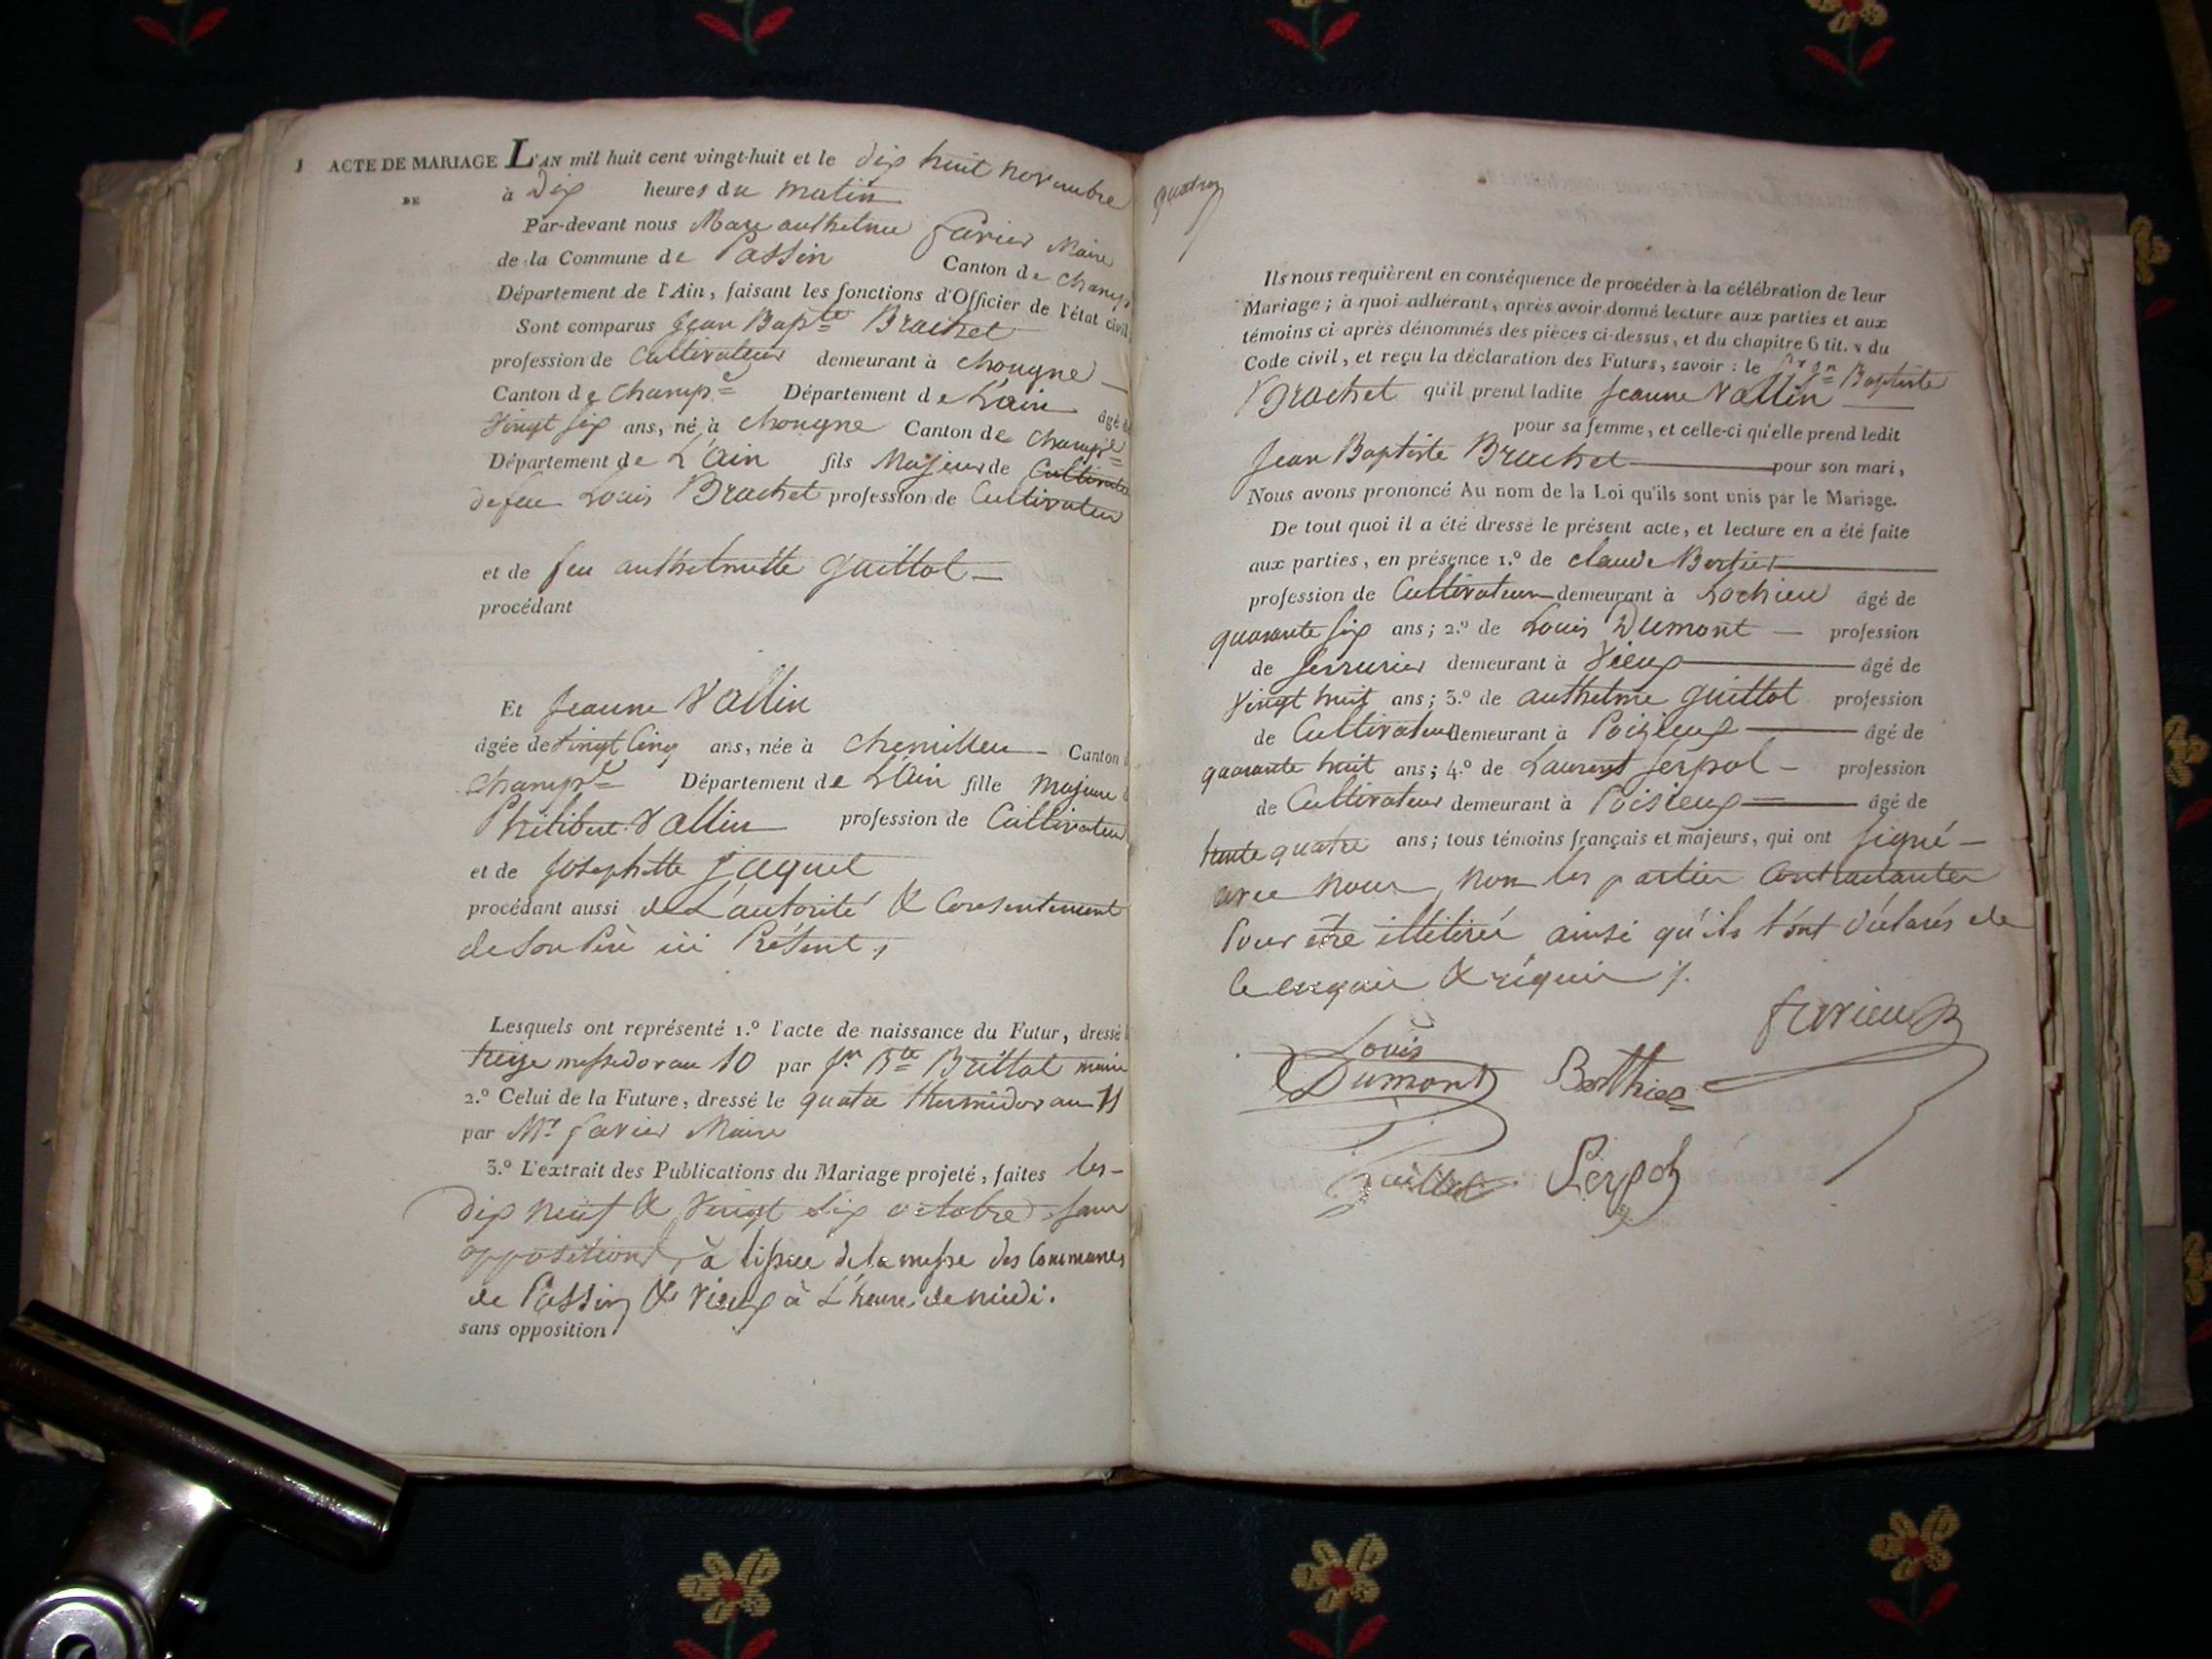 1 ACTE DE MARIAGE L'AN mil huit cent vingt-huit et le dix huit novembre
DE à dix heures du matin
Par-devant nous Marc anthelme favier Maire
de la Commune de Passin Canton de Champ
Département de l'Ain, faisant les fonctions d'Officier de l'état civil
Sont comparus Jean Bapte Brachet
profession de Cultivateur demeurant à chougne
Canton de Champe Département de L'ain âgé de
Vingt six ans, né à chougne Canton de Champe
Département de L'Ain fils Majeur de Cultivateur
de feu Louis Brachet profession de Cultivateur
et de feu anthelmette guillot
procédant
Et Jeanne Vallin
âgée de Vingt Cinq ans, née à chemilleu Canton
Champe Département de L'Ain fille Majeure
Philibert Vallin profession de Cultivateur
et de Josephette Jaquet
procédant aussi de L'autorité & Consentement
de Son Père ici Présent,
Lesquels ont représenté 1.º l'acte de naissance du Futur, dressé
treize messidor an 10 par Jn Bte Brillat maire
2.º Celui de la Future, dressé le quatre thermidor an 11
par Mr favier Maire
3.º L'extrait des Publications du Mariage projeté, faites les
dix neuf & Vingt Six octobre sans
opposition, à lissue de la messe des Communes
de Passin & Vieux à L'heure de midi.
sans opposition
Ils nous requièrent en conséquence de procéder à la célébration de leur
Mariage; à quoi adhérant, après avoir donné lecture aux parties et aux
témoins ci-après dénommés des pièces ci-dessus, et du chapitre 6 tit. v du
Code civil, et reçu la déclaration des Futurs, savoir : le Jean Baptiste
Brachet qu'il prend ladite Jeanne Vallin
pour sa femme, et celle-ci qu'elle prend ledit
Jean Baptiste Brachet pour son mari,
Nous avons prononcé Au nom de la Loi qu'ils sont unis par le Mariage.
De tout quoi il a été dressé le présent acte, et lecture en a été faite
aux parties, en présence 1.º de claude Bertier
profession de Cultivateur demeurant à Lochieu âgé de
quarante six ans; 2.º de Louis Dumont profession
de Serrurier demeurant à Vieux âgé de
Vingt huit ans; 3.º de anthelme guillot profession
de Cultivateur demeurant à Poizieux âgé de
quarante huit ans; 4.º de Laurent Serpol profession
de Cultivateur demeurant à Poisieux âgé de
trente quatre ans; tous témoins français et majeurs, qui ont signé
avec nous, non les parties Contractantes
Pour être illitiré ainsi qu'ils l'ont déclarés de
favier
Louis
Dumont Berthier
guillot Serpol